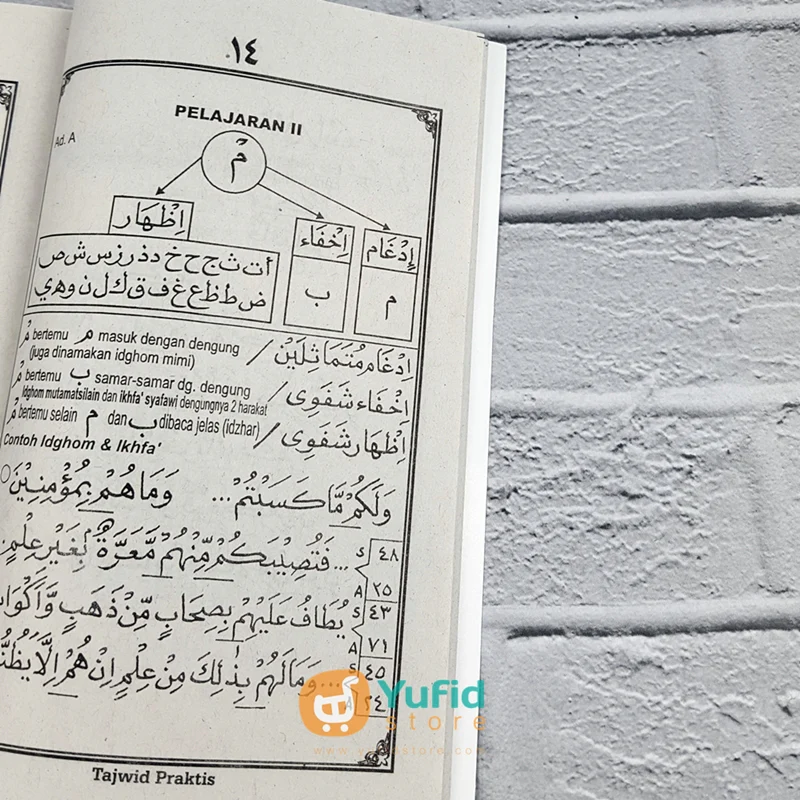 ١٤
PELAJARAN II
Ad. A
مْ
إِدْغَام
إِخْفَاء
إِظْهَار
م
ب
أ ت ث ج ح خ د ذ ر ز س ش ص
ض ط ظ ع غ ف ق ك ل ن و ه ي
مْ bertemu م masuk dengan dengung / إِدْغَام مُتَمَاثِلَيْن
(juga dinamakan idghom mimi)
مْ bertemu ب samar-samar dg. dengung / إِخْفَاء شَفَوِى
Idghom mutamatsilain dan ikhfa' syafawi dengungnya 2 harakat
مْ bertemu selain م dan ب dibaca jelas (idzhar) / إِظْهَار شَفَوِى
Contoh Idghom & Ikhfa'
وَلَكُمْ مَّا كَسَبْتُمْ... وَمَا هُمْ بِمُؤْمِنِيْنَ
S ٤٨ ...فَتُصِيْبَكُمْ مِّنْهُمْ مَّعَرَّةٌ بِغَيْرِ عِلْمٍ
A ٢٥
S ٤٣ يُطَافُ عَلَيْهِمْ بِصِحَافٍ مِّنْ ذَهَبٍ وَّأَكْوَابٍ
A ٧١
S ٤٥ ...وَمَالَهُمْ بِذٰلِكَ مِنْ عِلْمٍ اِنْ هُمْ اِلَّا يَظُنُّ
A ٢٤
Yufid
store
www.yufidstore.com
Tajwid Praktis